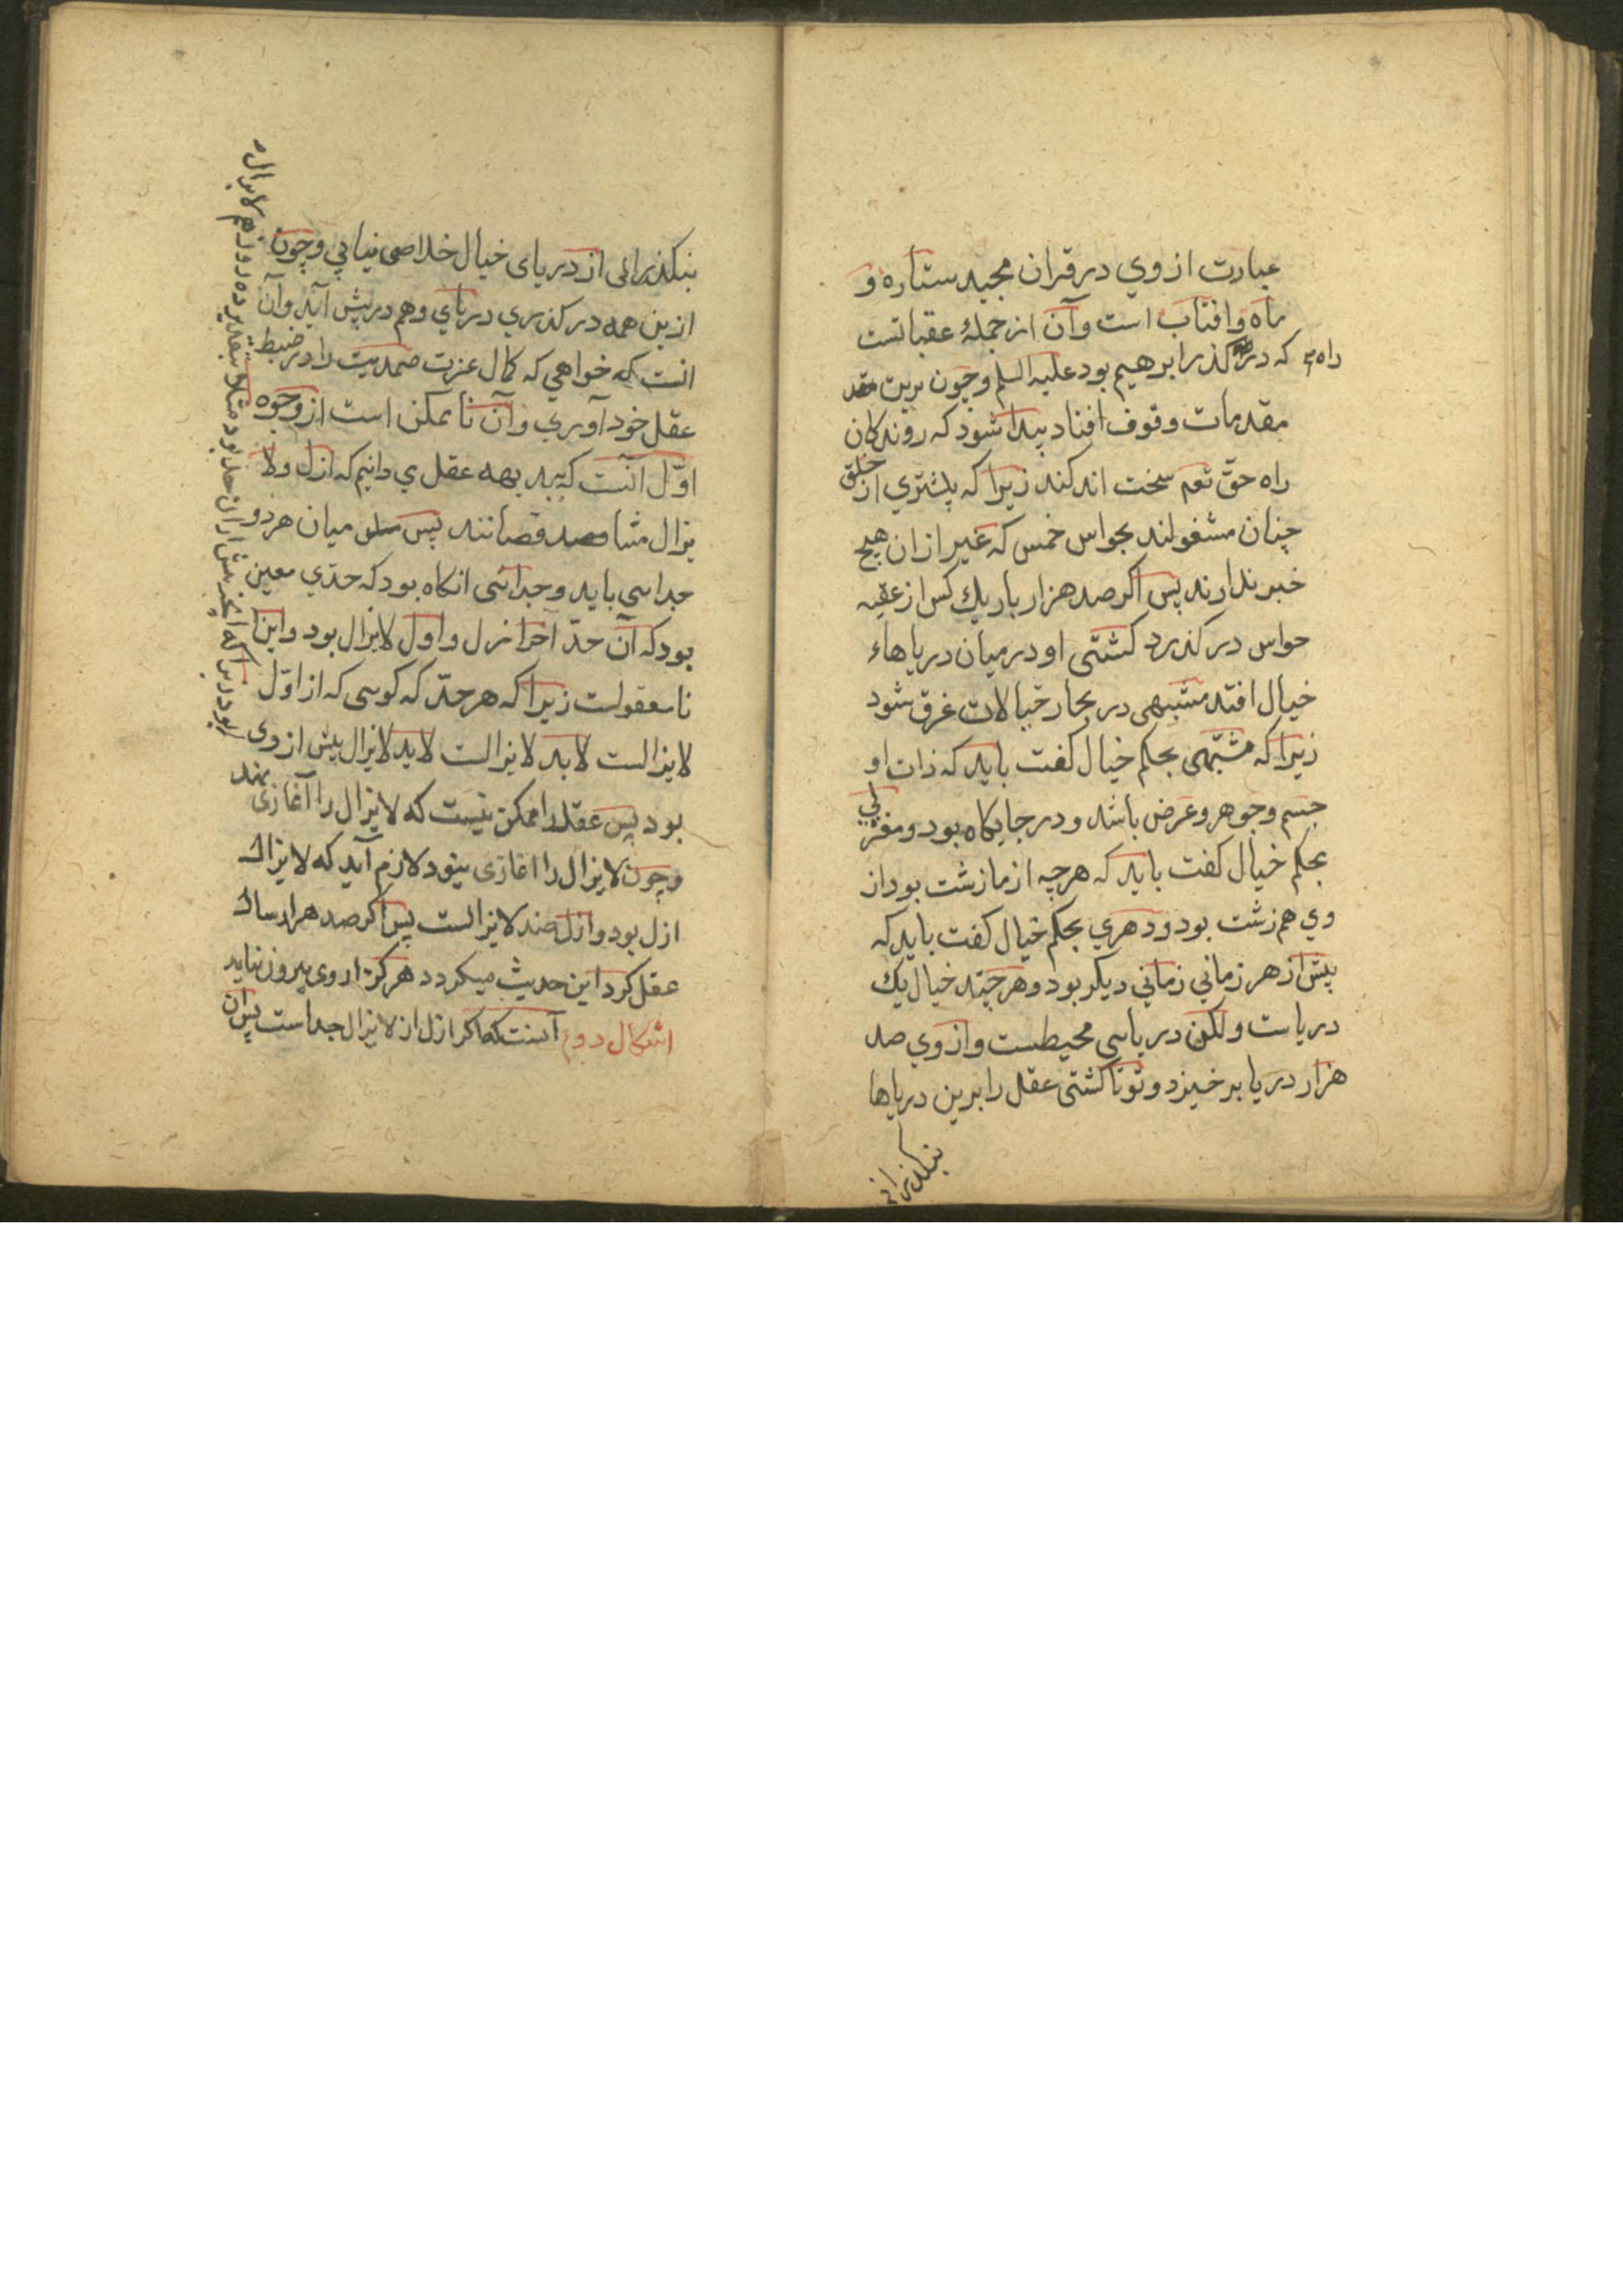 عبارت از وي در قران مجيد ستاره و
ماه و افتاب است و آن از جملۀ عقباتست
راه
که در گذر ابرهيم بود عليه السلم و چون برين
مقدمات وقوف افتاد پيدا شود که روندکان
راه حقّ تعم سخت اندکند زيرا که پيشتري از خلق
چنان مشغولند بحواس خمس که غير از ان هيچ
خبر ندارند پس اکر صد هزار بار يك کس از عقبه
حواس در کذرد کشتى او در ميان درياهاء
خيال افتد مشبهى در بحار خيالات غرق شود
زيرا که مشبّهى بحکم خيال کفت بايد که ذات او
جسم و جوهر و عرض باشد و در جايکاه بود و
بحکم خيال کفت بايد که هرچه از ما زشت بود از
وي هم زشت بود و دهري بحکم خيال کفت بايد که
پيش از هر زماني زماني ديکر بود و هر چند خيال يك
درياست ولکن درياىى محيطست و از وي صد
هزار دريا بر خيزد و تو تا کشتى عقل را برين درياها
بنکذرانى
بنکذرانى از درياى خيال خلاصى نيابي و چون
ازين همه در کذري درياي وهم در پيش آيد و آن
انست که خواهي که کمال عزت صمديت را در ضبط
عقل خود آوري و آن نا ممکن است از وجوه
اوّل آنست که ببديهه عقل مي دانيم که ازل ولا
يزال متناقصانند پس ميان هر دو
جداىى بايد و جداىى انکاه بود که حدّي معين
بود که آن حدّ آخر ازل و اول لايزال بود و اين
نا معقولست زيرا که هر حدّ که کوىى که از اوّل
لايزالست لابد لايزالست لابد لايزال پيش از وى
بود پس عقل را ممکن نيست که لايزال را آغازى نهد
و چون لايزال را اغازى نبود لازم آيد که لايزال
ازل بود و ازل ضد لايزالست پس اکر صد هزار سال
عقل کرد اين حديث ميکردد هرکز از وى بيرون نيايد
اشکال دوم آنست که اکر ازل از لايزال جداست پس ان